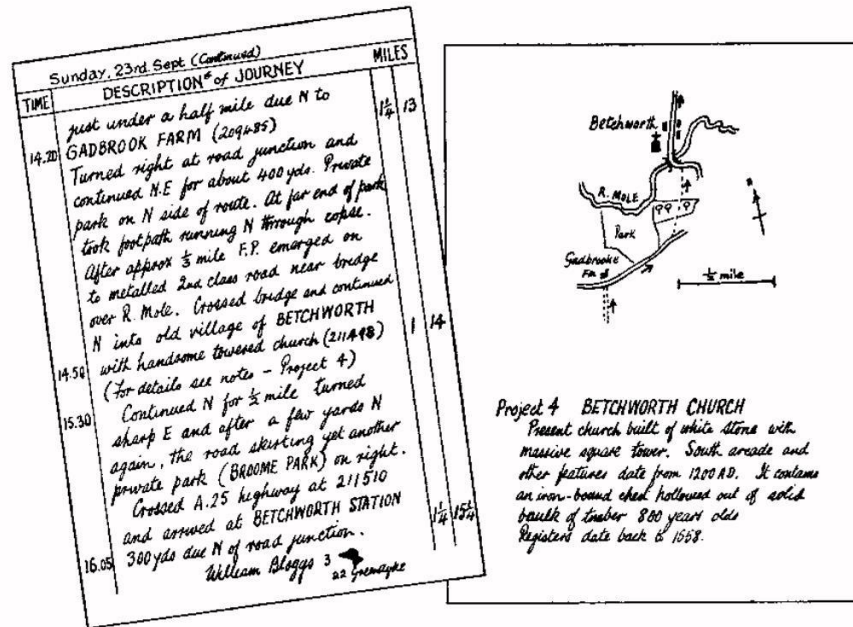 Sunday, 23rd. Sept (Continued)
TIME
DESCRIPTION of JOURNEY
MILES
just under a half mile due N to
14.20 GADBROOK FARM (209485) 1¼ 13
Turned right at road junction and
continued N.E for about 400 yds. Private
park on N side of route. At far end of park
took footpath running N through copse.
After approx ⅓ mile F.P. emerged on
to metalled 2nd class road near bridge
over R. Mole. Crossed bridge and continued
N into old village of BETCHWORTH
14.50 with handsome towered church (211498) 1 14
(For details see notes - Project 4)
15.30 Continued N for ½ mile turned
sharp E and after a few yards N
again, the road skirting yet another
private park (BROOME PARK) on right.
Crossed A.25 highway at 211510
and arrived at BETCHWORTH STATION 1¼ 15¼
16.05 300 yds due N of road junction.
William Bloggs 3
22
Betchworth
R. MOLE
Park
Gadbrooke
Fm
½ mile
Project 4 BETCHWORTH CHURCH
Present church built of white stone with
massive square tower. South arcade and
other features date from 1200 AD. It contains
an iron-bound chest hollowed out of solid
baulk of timber 800 years olds
Registers date back to 1558.